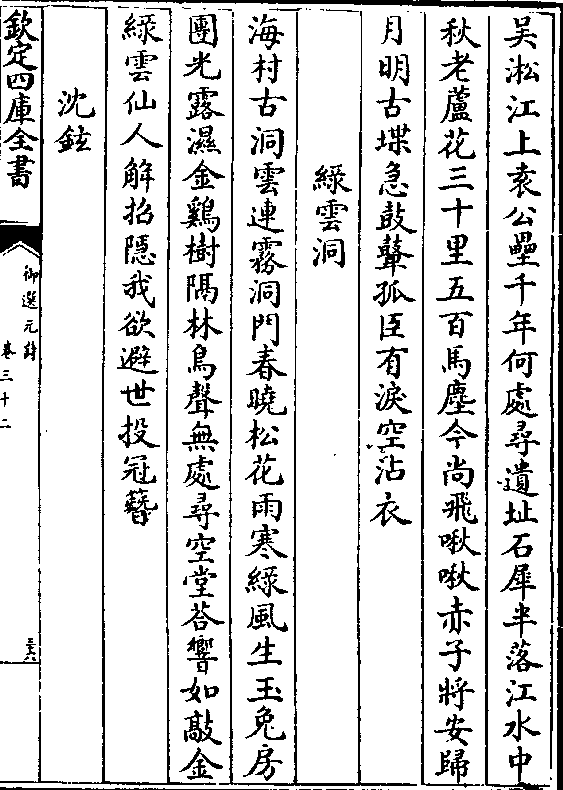 吴淞江上袁公壘千年何處尋遺址石犀半落江水中
秋老蘆花三十里五百馬塵今尚飛啾啾赤子將安歸
月明古堞急鼓鼙孤臣有淚空沾衣
緑雲洞
海村古洞雲連霧洞門春曉松花雨寒緑風生玉兔房
團光露濕金鷄樹隔林鳥聲無處尋空堂荅響如敲金
緑雲仙人解招隱我欲避世投冠簪
沈鉉
欽定四庫全書
御選元詩
卷三十二
三六